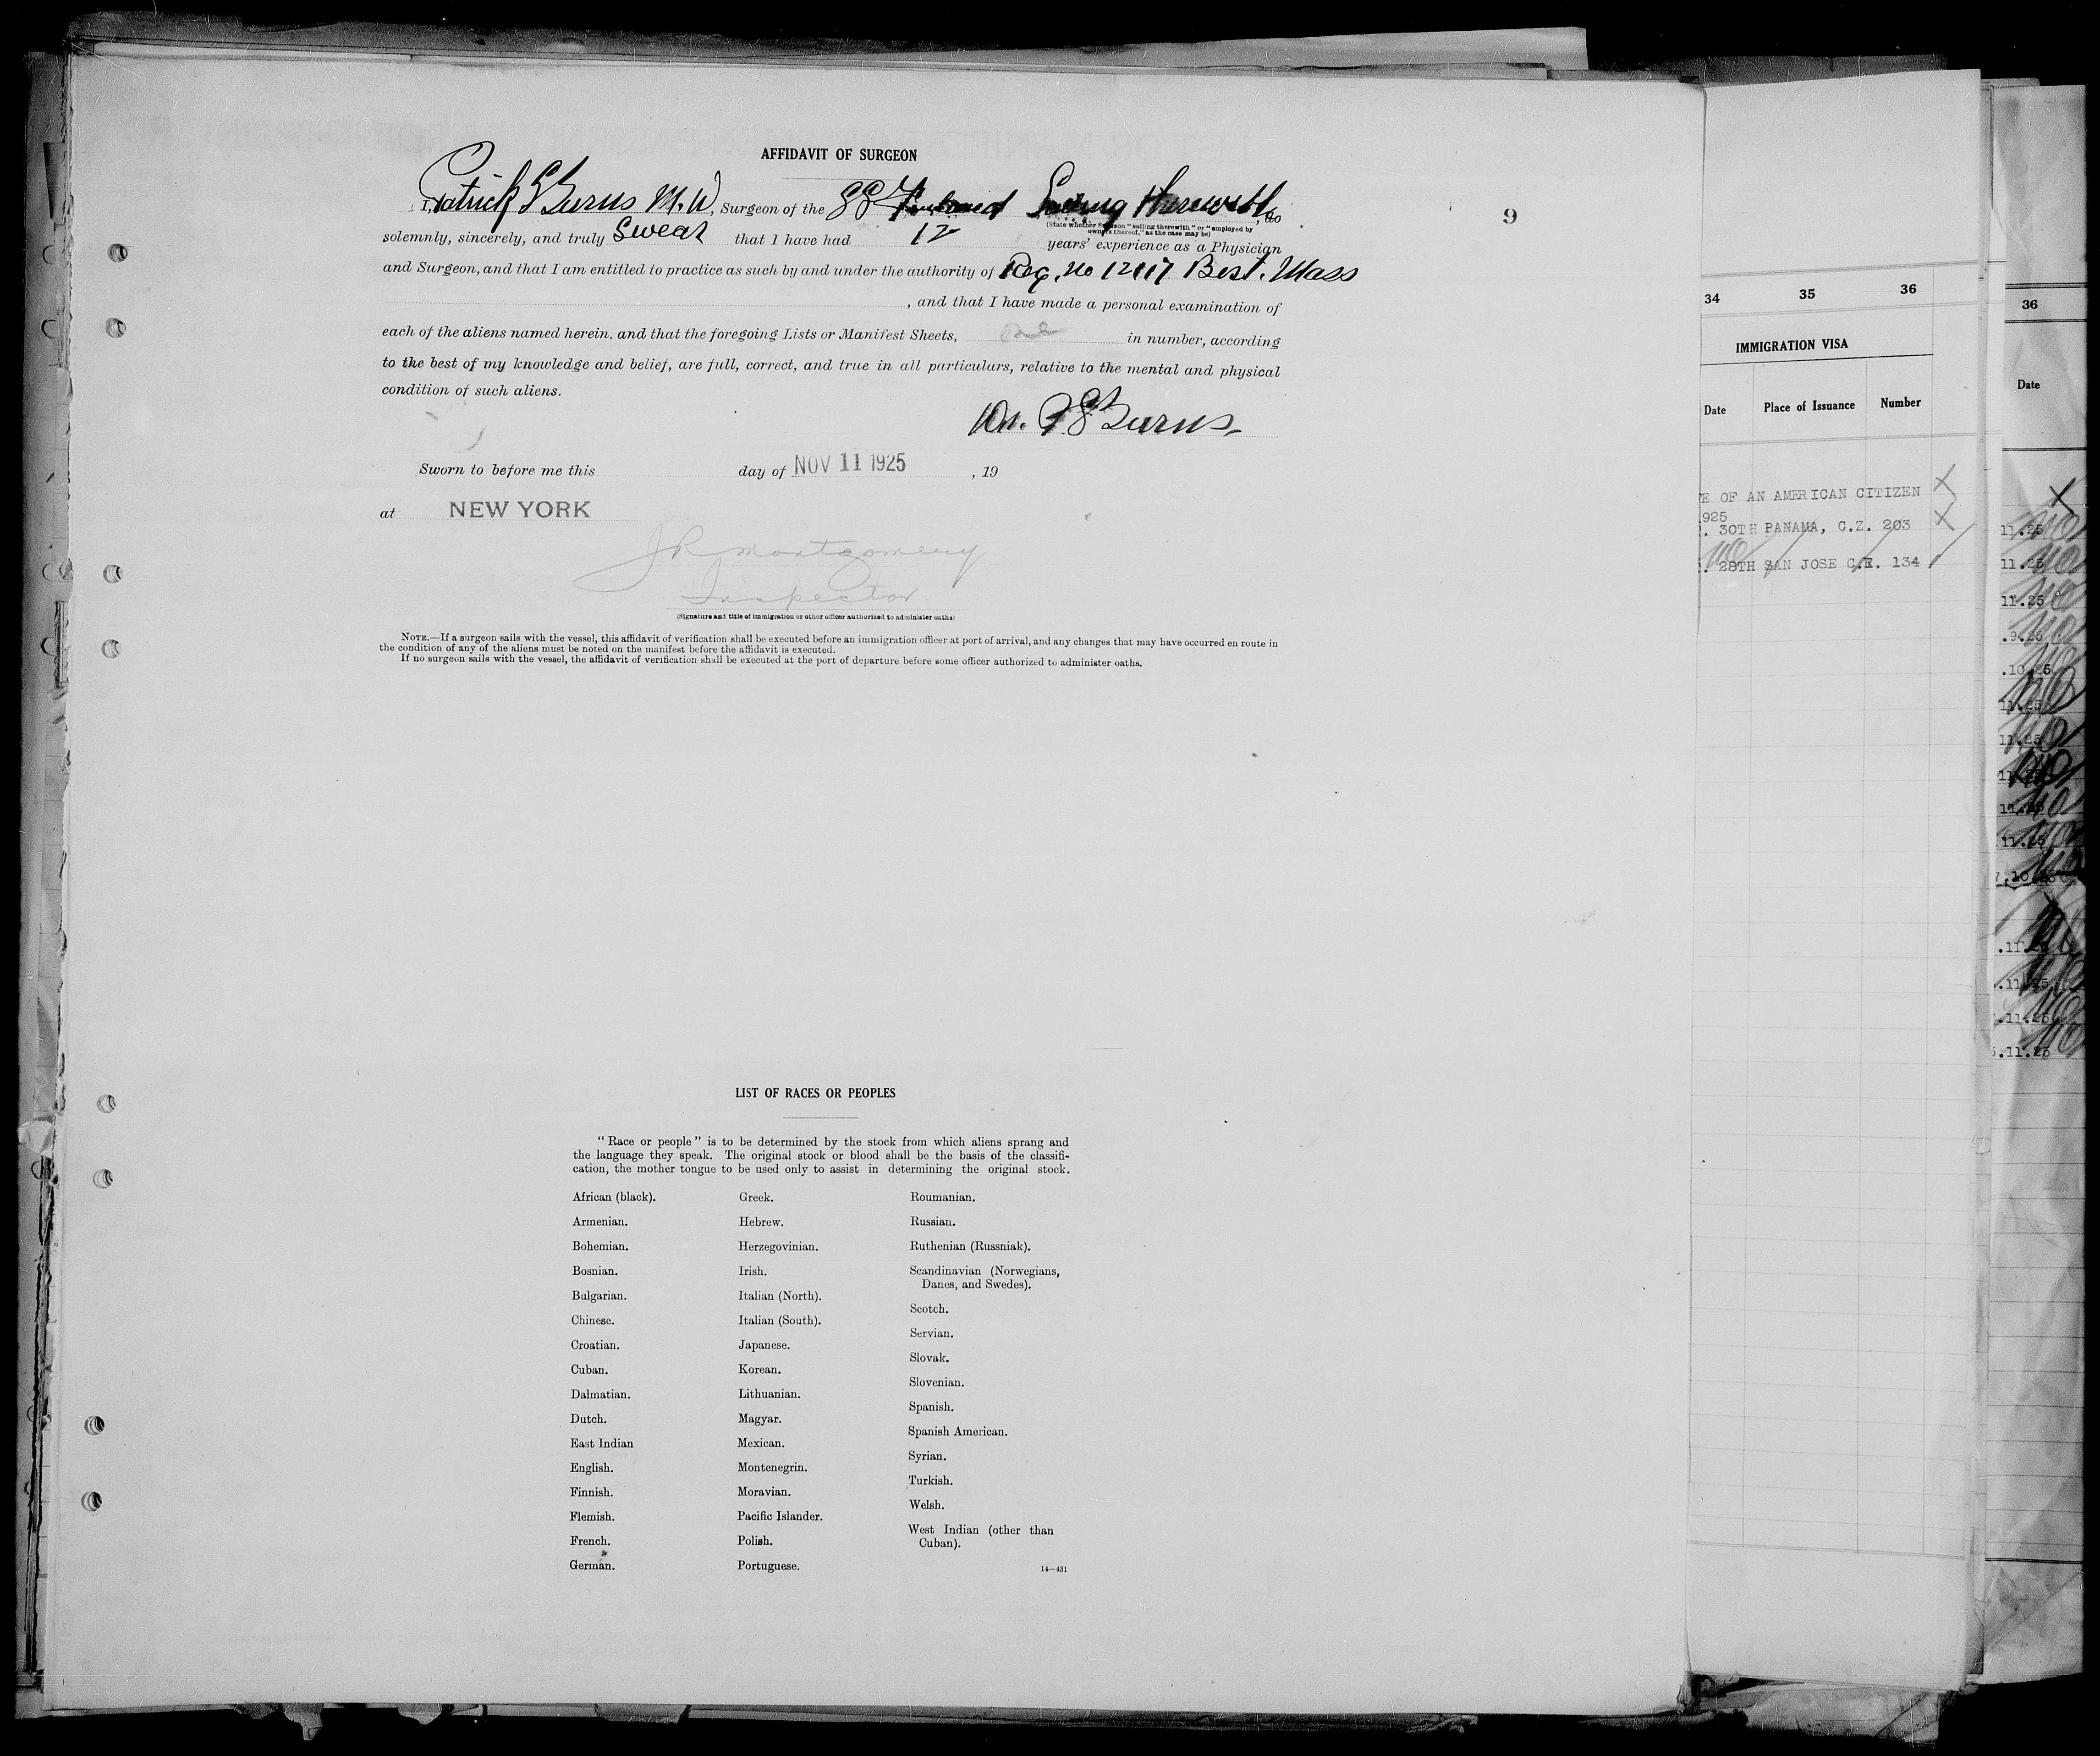 AFFIDAVIT OF SURGEON
I, Patrick S Burns M.D, Surgeon of the SS Sailing Herewith, do
(State whether surgeon "sailing therewith" or "employed by
owners thereof," as the case may be)
solemnly, sincerely, and truly swear that I have had 12 years' experience as a Physician
and Surgeon, and that I am entitled to practice as such by and under the authority of Reg. No Bost. Mass
, and that I have made a personal examination of
each of the aliens named herein, and that the foregoing Lists or Manifest Sheets, one in number, according
to the best of my knowledge and belief, are full, correct, and true in all particulars, relative to the mental and physical
condition of such aliens.
Dr. P S Burns
Sworn to before me this day of NOV 11 1925, 19
at NEW YORK
J R Montgomery
Inspector
(Signature and title of immigration or other officer authorized to administer oaths)
NOTE.—If a surgeon sails with the vessel, this affidavit of verification shall be executed before an immigration officer at port of arrival, and any changes that may have occurred en route in
the condition of any of the aliens must be noted on the manifest before the affidavit is executed.
If no surgeon sails with the vessel, the affidavit of verification shall be executed at the port of departure before some officer authorized to administer oaths.
9
LIST OF RACES OR PEOPLES
"Race or people" is to be determined by the stock from which aliens sprang and
the language they speak. The original stock or blood shall be the basis of the classifi-
cation, the mother tongue to be used only to assist in determining the original stock.
African (black).
Armenian.
Bohemian.
Bosnian.
Bulgarian.
Chinese.
Croatian.
Cuban.
Dalmatian.
Dutch.
East Indian
English.
Finnish.
Flemish.
French.
German.
Greek.
Hebrew.
Herzegovinian.
Irish.
Italian (North).
Italian (South).
Japanese.
Korean.
Lithuanian.
Magyar.
Mexican.
Montenegrin.
Moravian.
Pacific Islander.
Polish.
Portuguese.
Roumanian.
Russian.
Ruthenian (Russniak).
Scandinavian (Norwegians,
Danes, and Swedes).
Scotch.
Servian.
Slovak.
Slovenian.
Spanish.
Spanish American.
Syrian.
Turkish.
Welsh.
West Indian (other than
Cuban).
14—431
34 35 36
IMMIGRATION VISA
Date Place of Issuance Number
E OF AN AMERICAN CITIZEN X
925
. 30TH PANAMA, C.Z. 203 X
. 28TH SAN JOSE C.R. 134
36
Date
X
11.25
11.25
11.25
.9.25
.10.25
11.25
11.25
11.25
11.25
11.25
.11.25
.11.25
.11.25